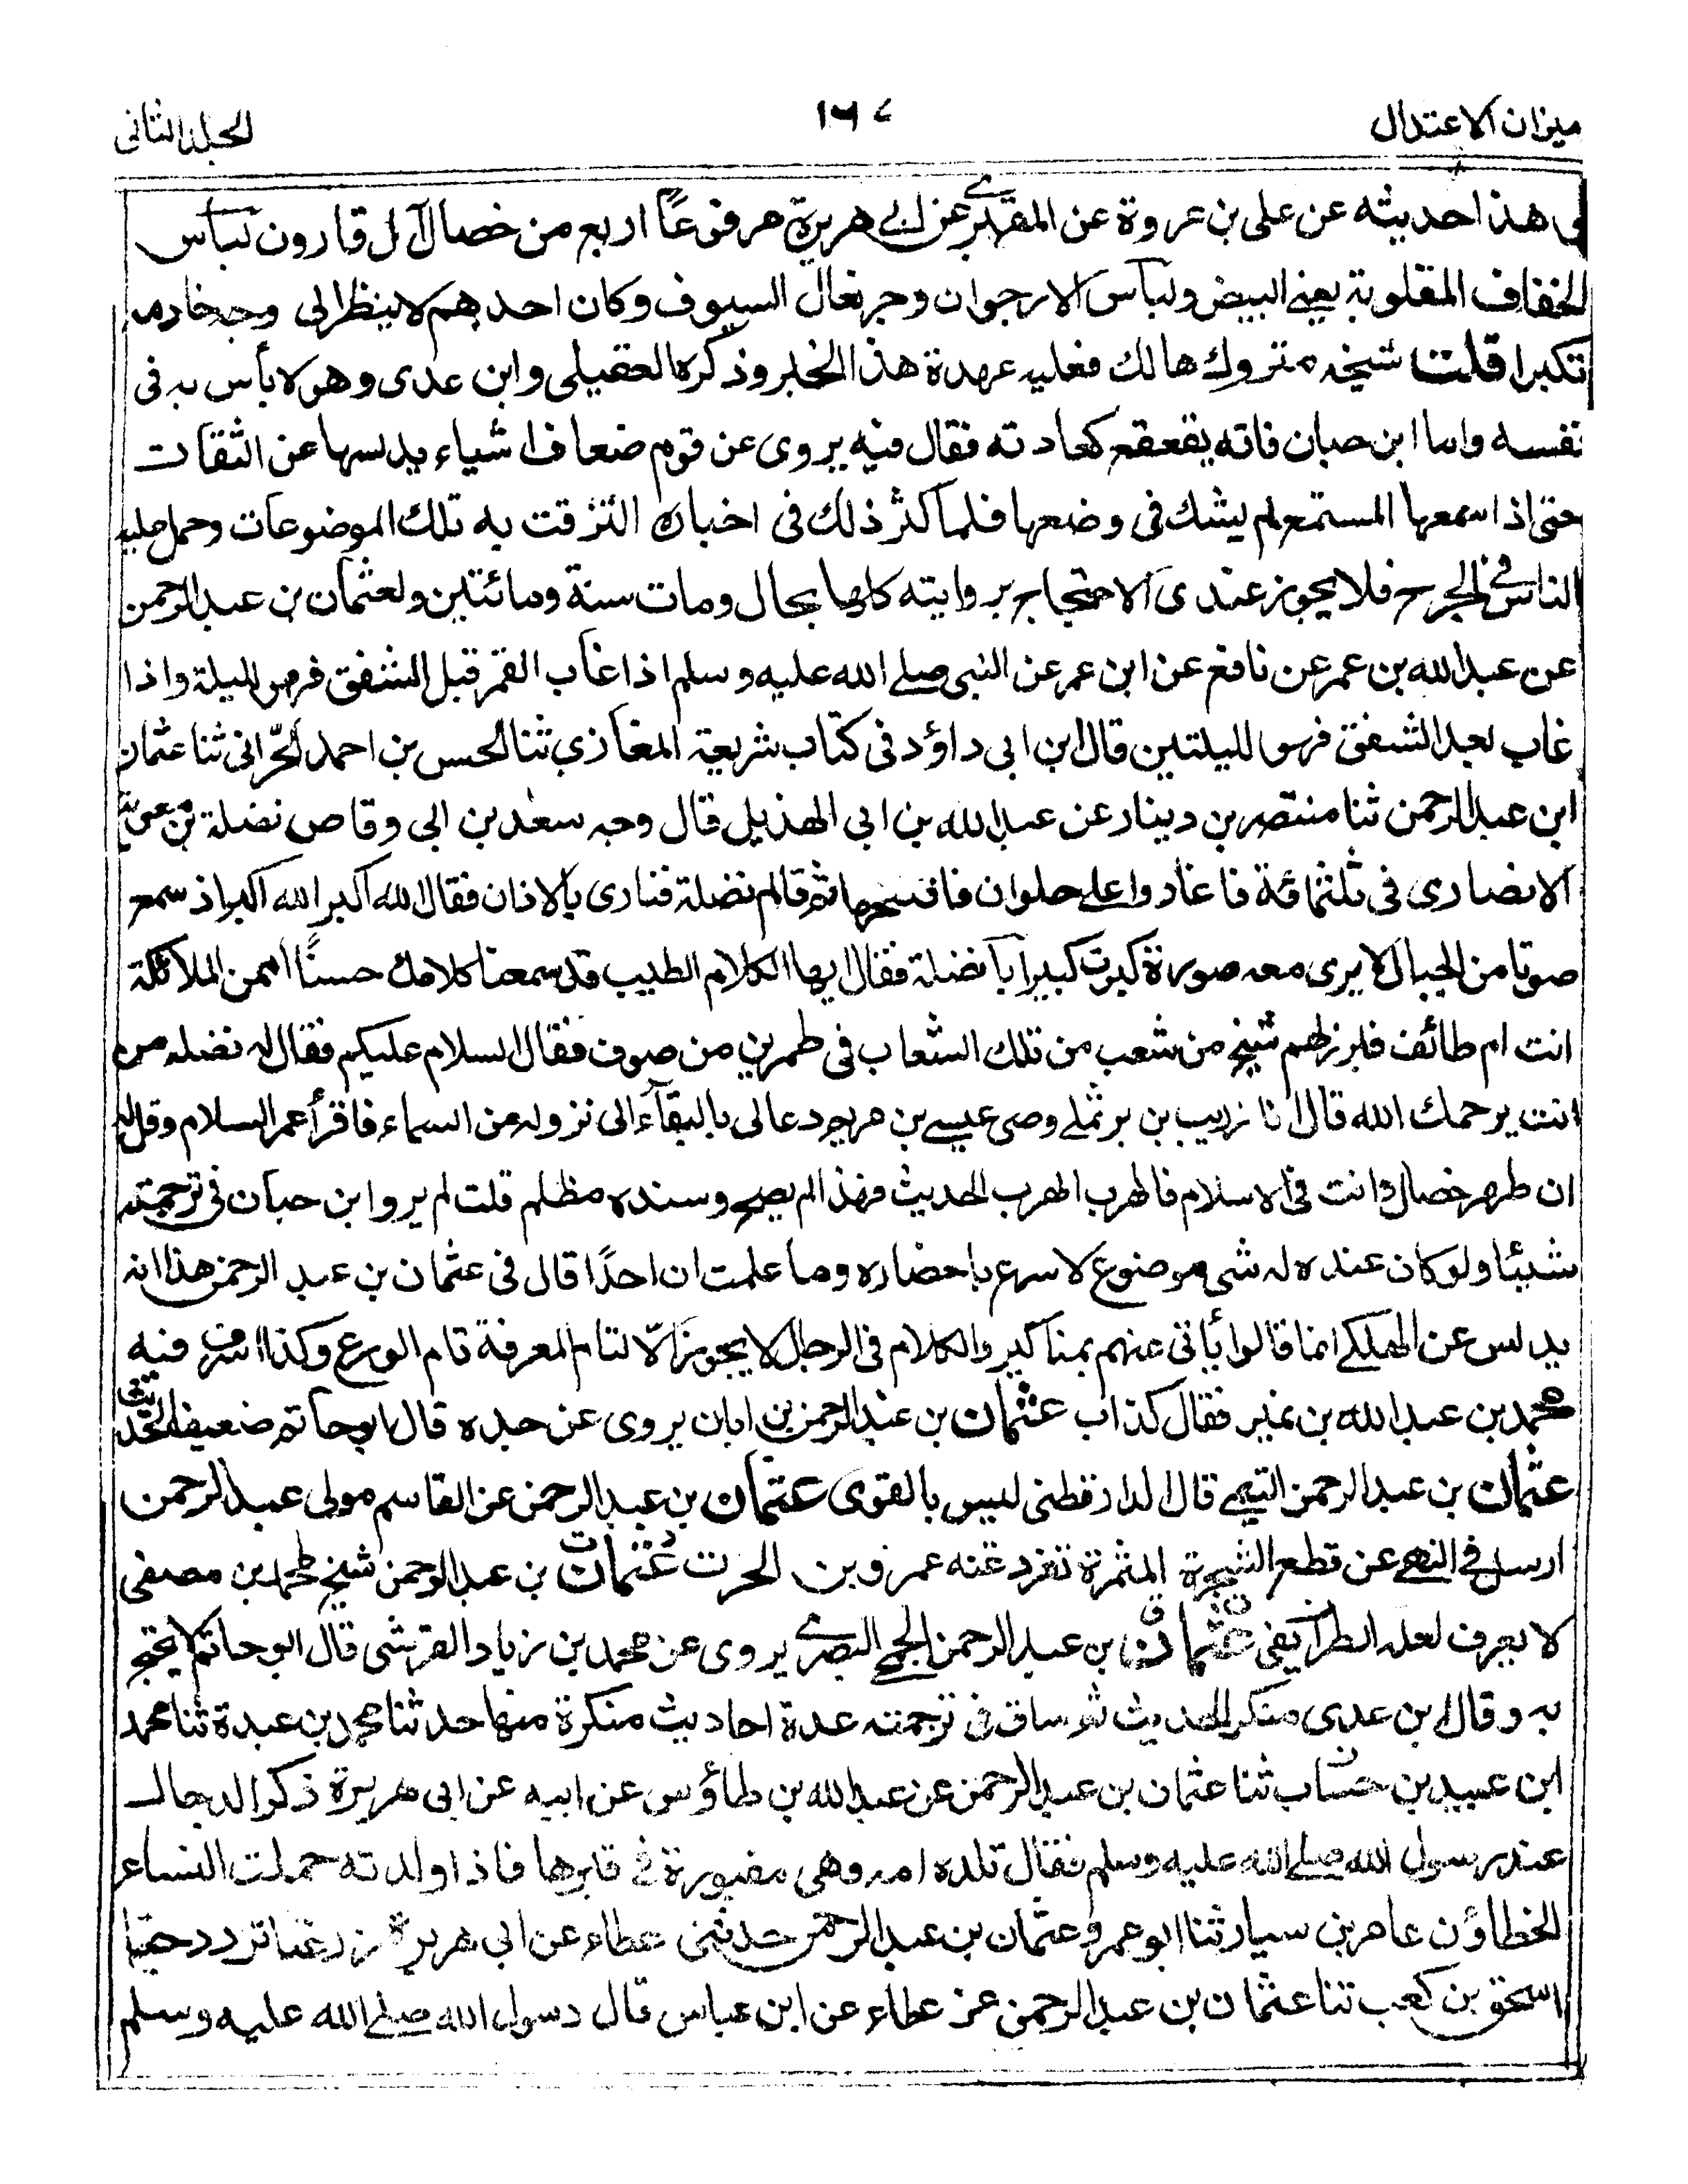 ميزان الاعتدال
١٦٧
الجلد الثانى
فى هذا حديثه عن على بن عروة عن المقبرى عن ابى هريرة مرفوعًا اربع من خصال آل قارون لباس
الخفاف المقلوبة يعنى البيض ولباس الارجوان وجر نعال السيوف وكان احدهم لا ينظر الى وجه خادمه
تكبرا قلت شيخه متروك هالك فعليه عهدة هذا الخبر وذكره العقيلى وابن عدى وهو لا بأس به فى
نفسه واما ابن حبان فانه يقعقع كعادته فقال فيه يروى عن قوم ضعاف اشياء يدلسها عن الثقات
حتى اذا سمعها المستمع لم يشك فى وضعها فلما كثر ذلك فى اخباره التزقت به تلك الموضوعات وحمل عليه
الناس فى الجرح فلا يجوز عندى الاحتجاج بروايته كلها بحال ومات سنة ومائتين ولعثمان بن عبد الرحمن
عن عبد الله بن عمر عن نافع عن ابن عمر عن النبى صلى الله عليه وسلم اذا غاب القمر قبل الشفق فهو لليلة واذا
غاب بعد الشفق فهو لليلتين قال ابن ابى داؤد فى كتاب شريعة المغازى ثنا الحسن بن احمد الحرّانى ثنا عثمان
ابن عبد الرحمن ثنا منتصر بن دينار عن عبد الله بن ابى الهذيل قال وجه سعد بن ابى وقاص نضلة بن عمرو
الانصارى فى ثلثمائة فاغاروا على حلوان فافتتحها ثم قالم نضلة فنارى بالاذان فقال الله اكبر الله اكبر اذ سمع
صوتا من الجبال لا يرى معه صورة كبرت كبيرا يا نضلة فقال ايها الكلام الطيب قد سمعنا كلامك حسنًا امن الملائكة
انت ام طائف فبرز لهم شيخ من شعب من تلك الشعاب فى طمرين من صوف فقال السلام عليكم فقال له نضله من
انت يرحمك الله قال انا زريب بن برثملى وصى عيسى بن مريم دعا لى بالبقآء الى نزوله من السماء فاقرأ عمر السلام وقل له
ان ظهر خصال وانت فى الاسلام فالهرب الهرب الحديث فهذا لم يصح وسنده مظلم قلت لم يرو ابن حبان فى ترجمته
شيئا ولو كان عنده له شى موضوع لاسرع باحضاره وما علمت ان احدًا قال فى عثمان بن عبد الرحمن هذا انه
يدلس عن الهلكى انما قالوا يأتى عنهم بمناكير والكلام فى الرجال لا يجوز الّا لتام المعرفة تام الورع وكذا اسرف فيه
محمد بن عبد الله بن نمير فقال كذاب عثمان بن عبد الرحمن بن ابان يروى عن جده قال ابو حاتم ضعيف الحديث
عثمان بن عبد الرحمن التيمى قال الدارقطنى ليس بالقوى عثمان بن عبد الرحمن عن القاسم مولى عبد الرحمن
ارسل فى النهى عن قطع الشجرة المثمرة تفرد عنه عمرو بن الحرث عثمان بن عبد الرحمن شيخ لمحمد بن مصفى
لا يعرف لعله الطرايفى عثمان بن عبد الرحمن الجمحى البصرى يروى عن محمد بن زياد القرشى قال ابو حاتم لا يحتج
به وقال ابن عدى منكر الحديث ثم ساق فى ترجمته عدة احاديث منكرة منها حدثنا محمد بن عبدة ثنا محمد
ابن عبيد بن حساب ثنا عثمان بن عبد الرحمن عن عبد الله بن طاؤس عن ابيه عن ابى هريرة ذكر الدجال
عند رسول الله صلى الله عليه وسلم فقال تلده امه وهى مقبورة فى قبرها فاذا ولدته حملت النساء
الخطاؤن عامر بن سيار ثنا ابو عمرو عثمان بن عبد الرحمن حدثنى عطاء عن ابى هريرة زر غبا تزدد حبا
اسحق بن كعب ثنا عثمان بن عبد الرحمن عن عطاء عن ابن عباس قال رسول الله صلى الله عليه وسلم